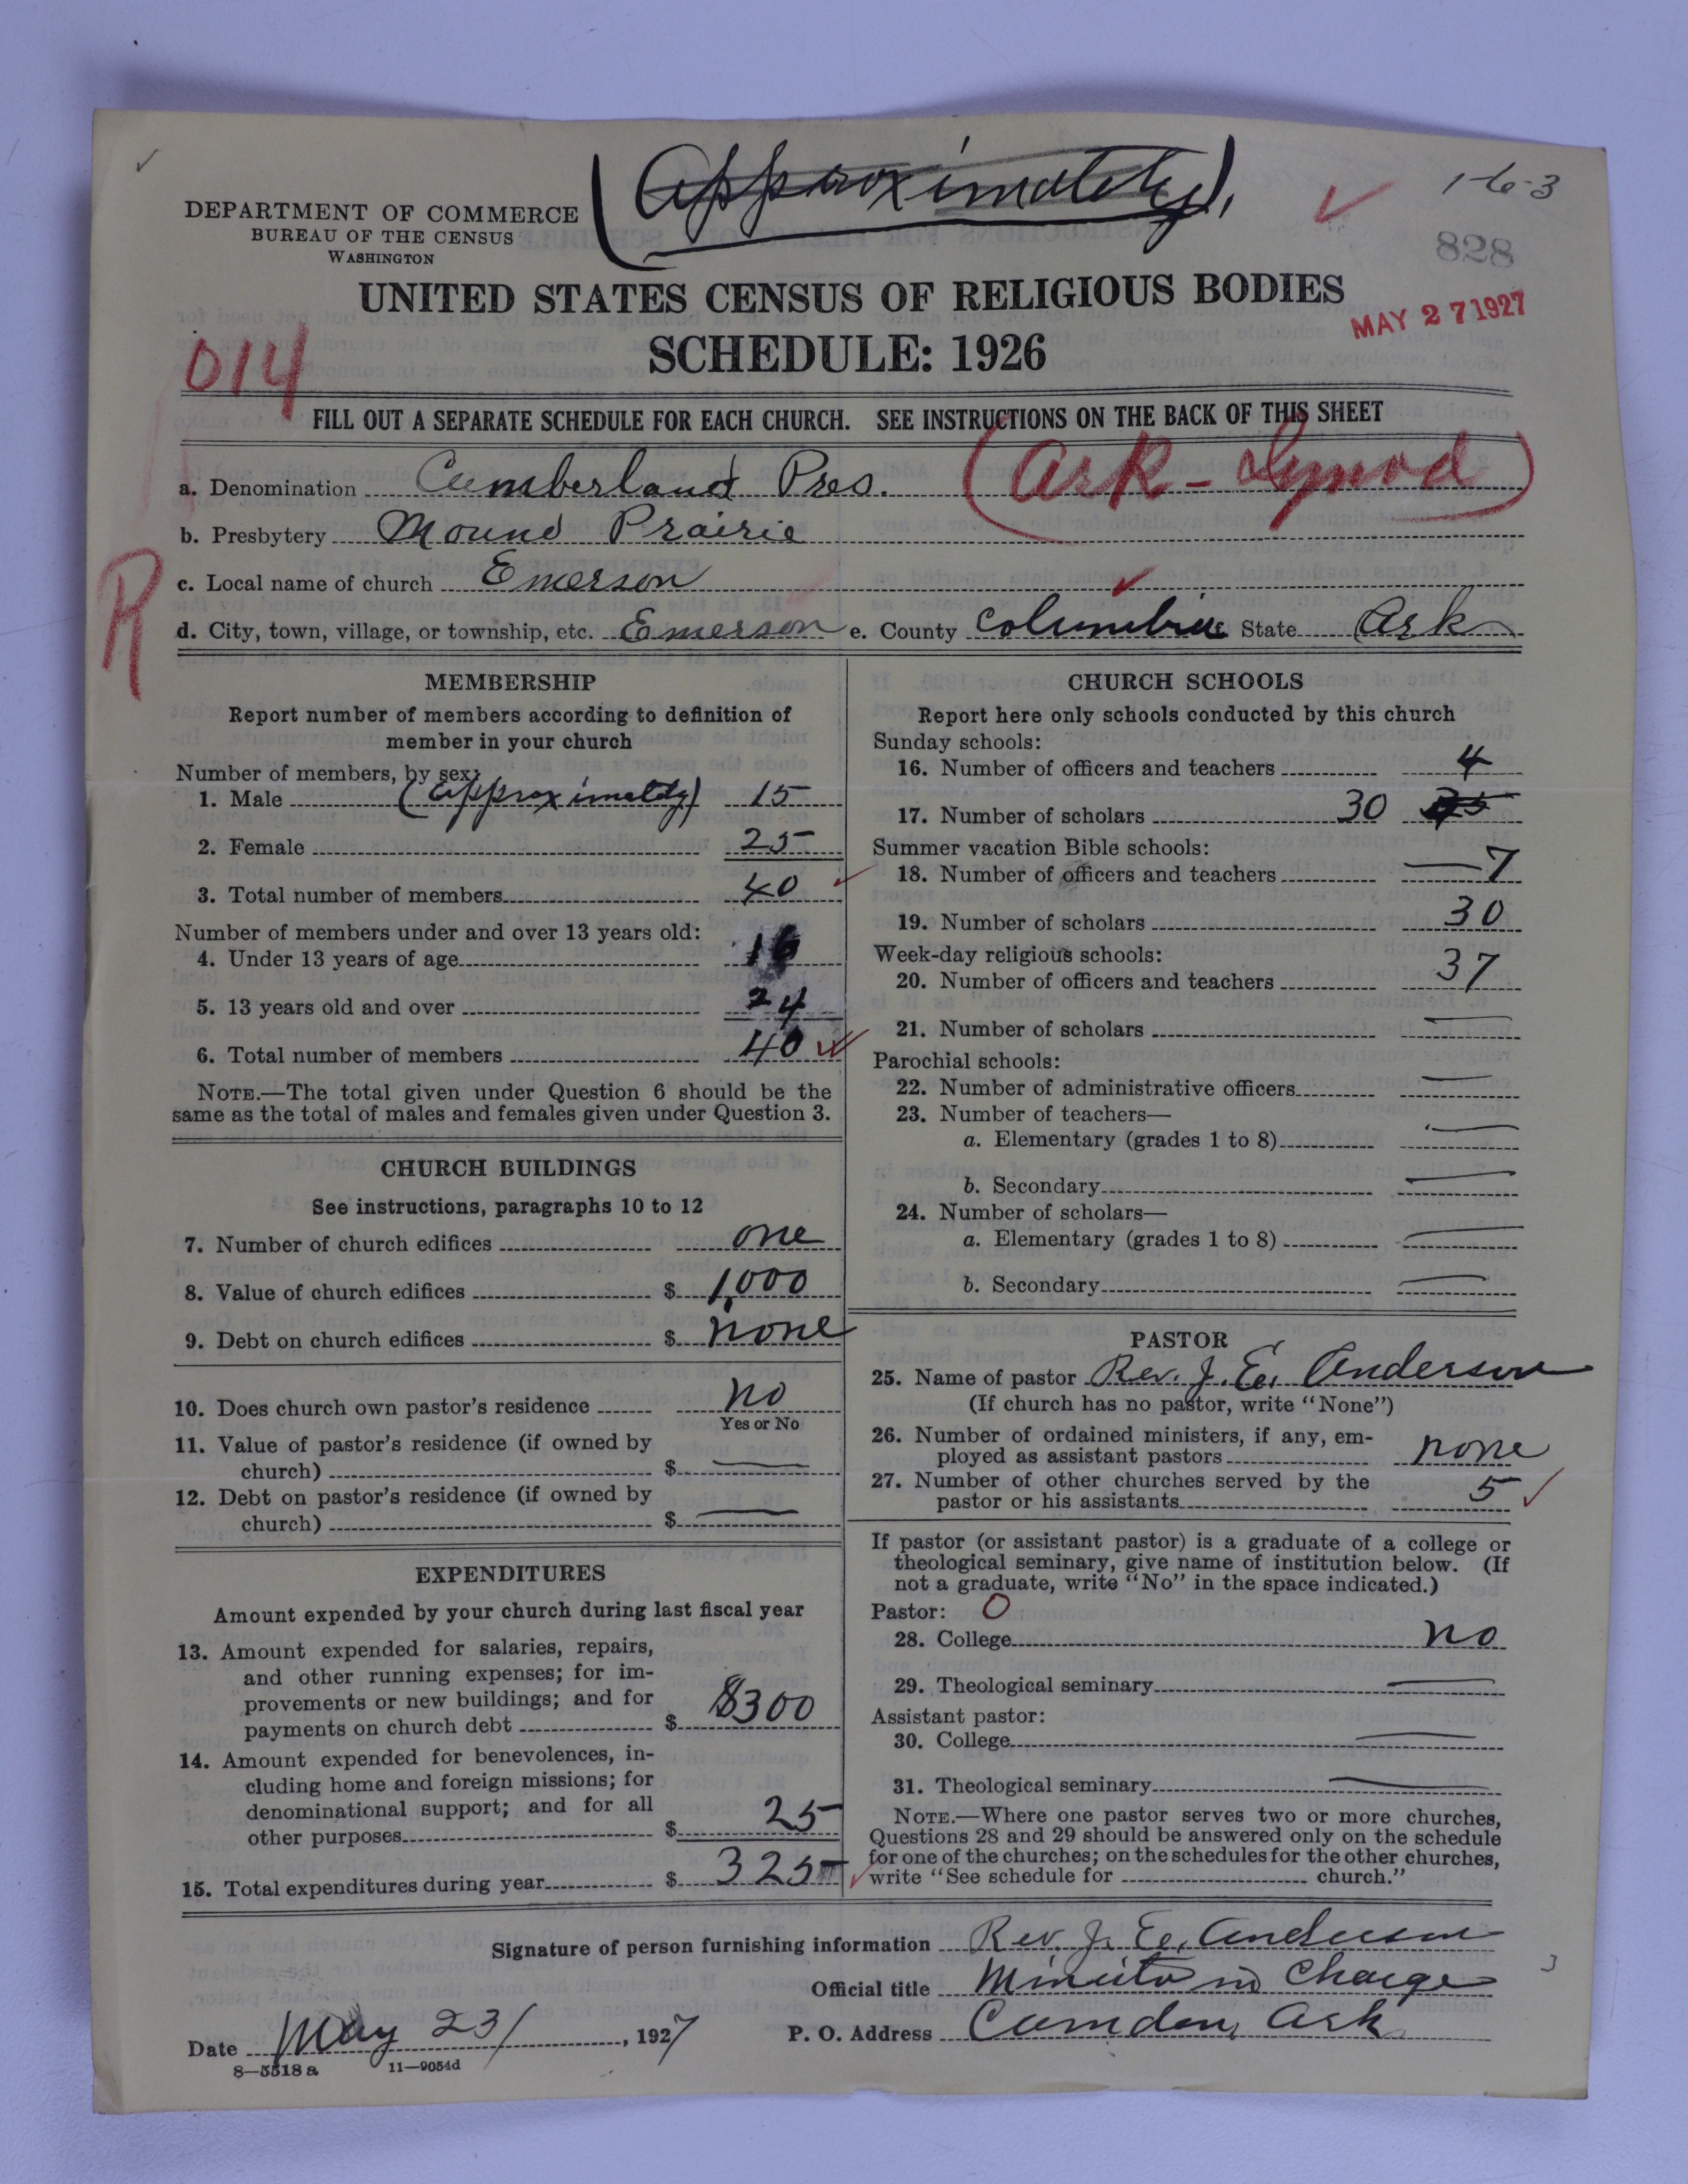 (Approximately),
1-6-3
828
DEPARTMENT OF COMMERCE
BUREAU OF THE CENSUS
WASHINGTON
UNITED STATES CENSUS OF RELIGIOUS BODIES
MAY 27 1927
SCHEDULE: 1926
014
FILL OUT A SEPARATE SCHEDULE FOR EACH CHURCH. SEE INSTRUCTIONS ON THE BACK OF THIS SHEET
(Ark - Synod)
a. Denomination Cumberland Pres.
b. Presbytery Mound Prairie
R
c. Local name of church Emerson
d. City, town, village, or township, etc. Emerson e. County Columbia State Ark
MEMBERSHIP
Report number of members according to definition of
member in your church
Number of members, by sex:
1. Male (approximately) 15
2. Female 25
3. Total number of members 40
Number of members under and over 13 years old:
4. Under 13 years of age 16
5. 13 years old and over 24
6. Total number of members 40
NOTE.—The total given under Question 6 should be the
same as the total of males and females given under Question 3.
CHURCH BUILDINGS
See instructions, paragraphs 10 to 12
7. Number of church edifices one
8. Value of church edifices $ 1,000
9. Debt on church edifices $ none
10. Does church own pastor's residence no
Yes or No
11. Value of pastor's residence (if owned by
church) $ —
12. Debt on pastor's residence (if owned by
church) $ —
EXPENDITURES
Amount expended by your church during last fiscal year
13. Amount expended for salaries, repairs,
and other running expenses; for im-
provements or new buildings; and for
payments on church debt $ $300
14. Amount expended for benevolences, in-
cluding home and foreign missions; for
denominational support; and for all
other purposes $ 25
15. Total expenditures during year $ 325
CHURCH SCHOOLS
Report here only schools conducted by this church
Sunday schools:
16. Number of officers and teachers 4
17. Number of scholars 30
Summer vacation Bible schools:
18. Number of officers and teachers — 7
19. Number of scholars 30
Week-day religious schools:
20. Number of officers and teachers 37
21. Number of scholars —
Parochial schools:
22. Number of administrative officers —
23. Number of teachers—
a. Elementary (grades 1 to 8) —
b. Secondary —
24. Number of scholars—
a. Elementary (grades 1 to 8) —
b. Secondary —
PASTOR
25. Name of pastor Rev. J. E. Anderson
(If church has no pastor, write "None")
26. Number of ordained ministers, if any, em-
ployed as assistant pastors none
27. Number of other churches served by the
pastor or his assistants 5
If pastor (or assistant pastor) is a graduate of a college or
theological seminary, give name of institution below. (If
not a graduate, write "No" in the space indicated.)
Pastor: O
28. College no
29. Theological seminary —
Assistant pastor:
30. College —
31. Theological seminary —
NOTE.—Where one pastor serves two or more churches,
Questions 28 and 29 should be answered only on the schedule
for one of the churches; on the schedules for the other churches,
write "See schedule for church."
Signature of person furnishing information Rev. J. E. Anderson
Official title Minister in Charge
Date May 23/, 1927 P. O. Address Camden, Ark.
8—5518 a 11—9054d